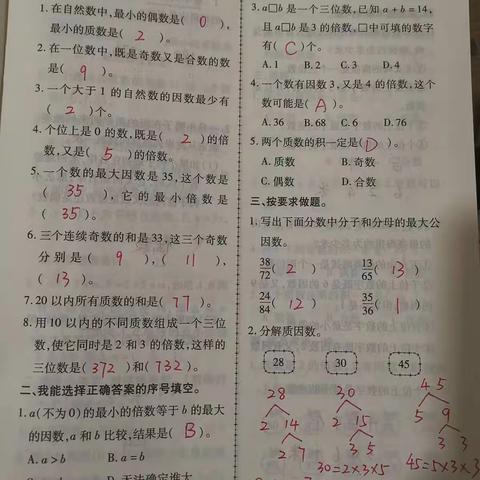 1. 在自然数中,最小的偶数是( 0 ),
最小的质数是( 2 )。
2. 在一位数中,既是奇数又是合数的数
是( 9 )。
3. 一个大于 1 的自然数的因数最少有
( 2 )个。
4. 个位上是 0 的数,既是( 2 )的倍
数,又是( 5 )的倍数。
5. 一个数的最大因数是 35,这个数是
( 35 ),它的最小倍数是
( 35 )。
6. 三个连续奇数的和是 33,这三个奇数
分别是( 9 ),( 11 ),
( 13 )。
7. 20 以内所有质数的和是( 77 )。
8. 用 10 以内的不同质数组成一个三位
数,使它同时是 2 和 3 的倍数,这样的
三位数是(372)和(732)。
二、我能选择正确答案的序号填空。
1. a(不为 0)的最小的倍数等于 b 的最大
的因数,a 和 b 比较,结果是( B )。
A. a>b B. a=b
D. 无法确定谁大
3. a□b 是一个三位数,已知 a+b=14,
且 a□b 是 3 的倍数,□中可填的数字
有( C )个。
A. 1 B. 2 C. 3 D. 4
4. 一个数有因数 3,又是 4 的倍数,这个
数可能是( A )。
A. 36 B. 68 C. 6 D. 76
5. 两个质数的积一定是( D )。
A. 质数 B. 奇数
C. 偶数 D. 合数
三、按要求做题。
1. 写出下面分数中分子和分母的最大公
因数。
38/72( 2 ) 13/65( 13 )
24/84( 12 ) 35/36( 1 )
2. 分解质因数。
28 30 45
28 30 45
2 14 2 15 5 9
2 7 3 5 3 3
30=2×3×5 45=5×3×3